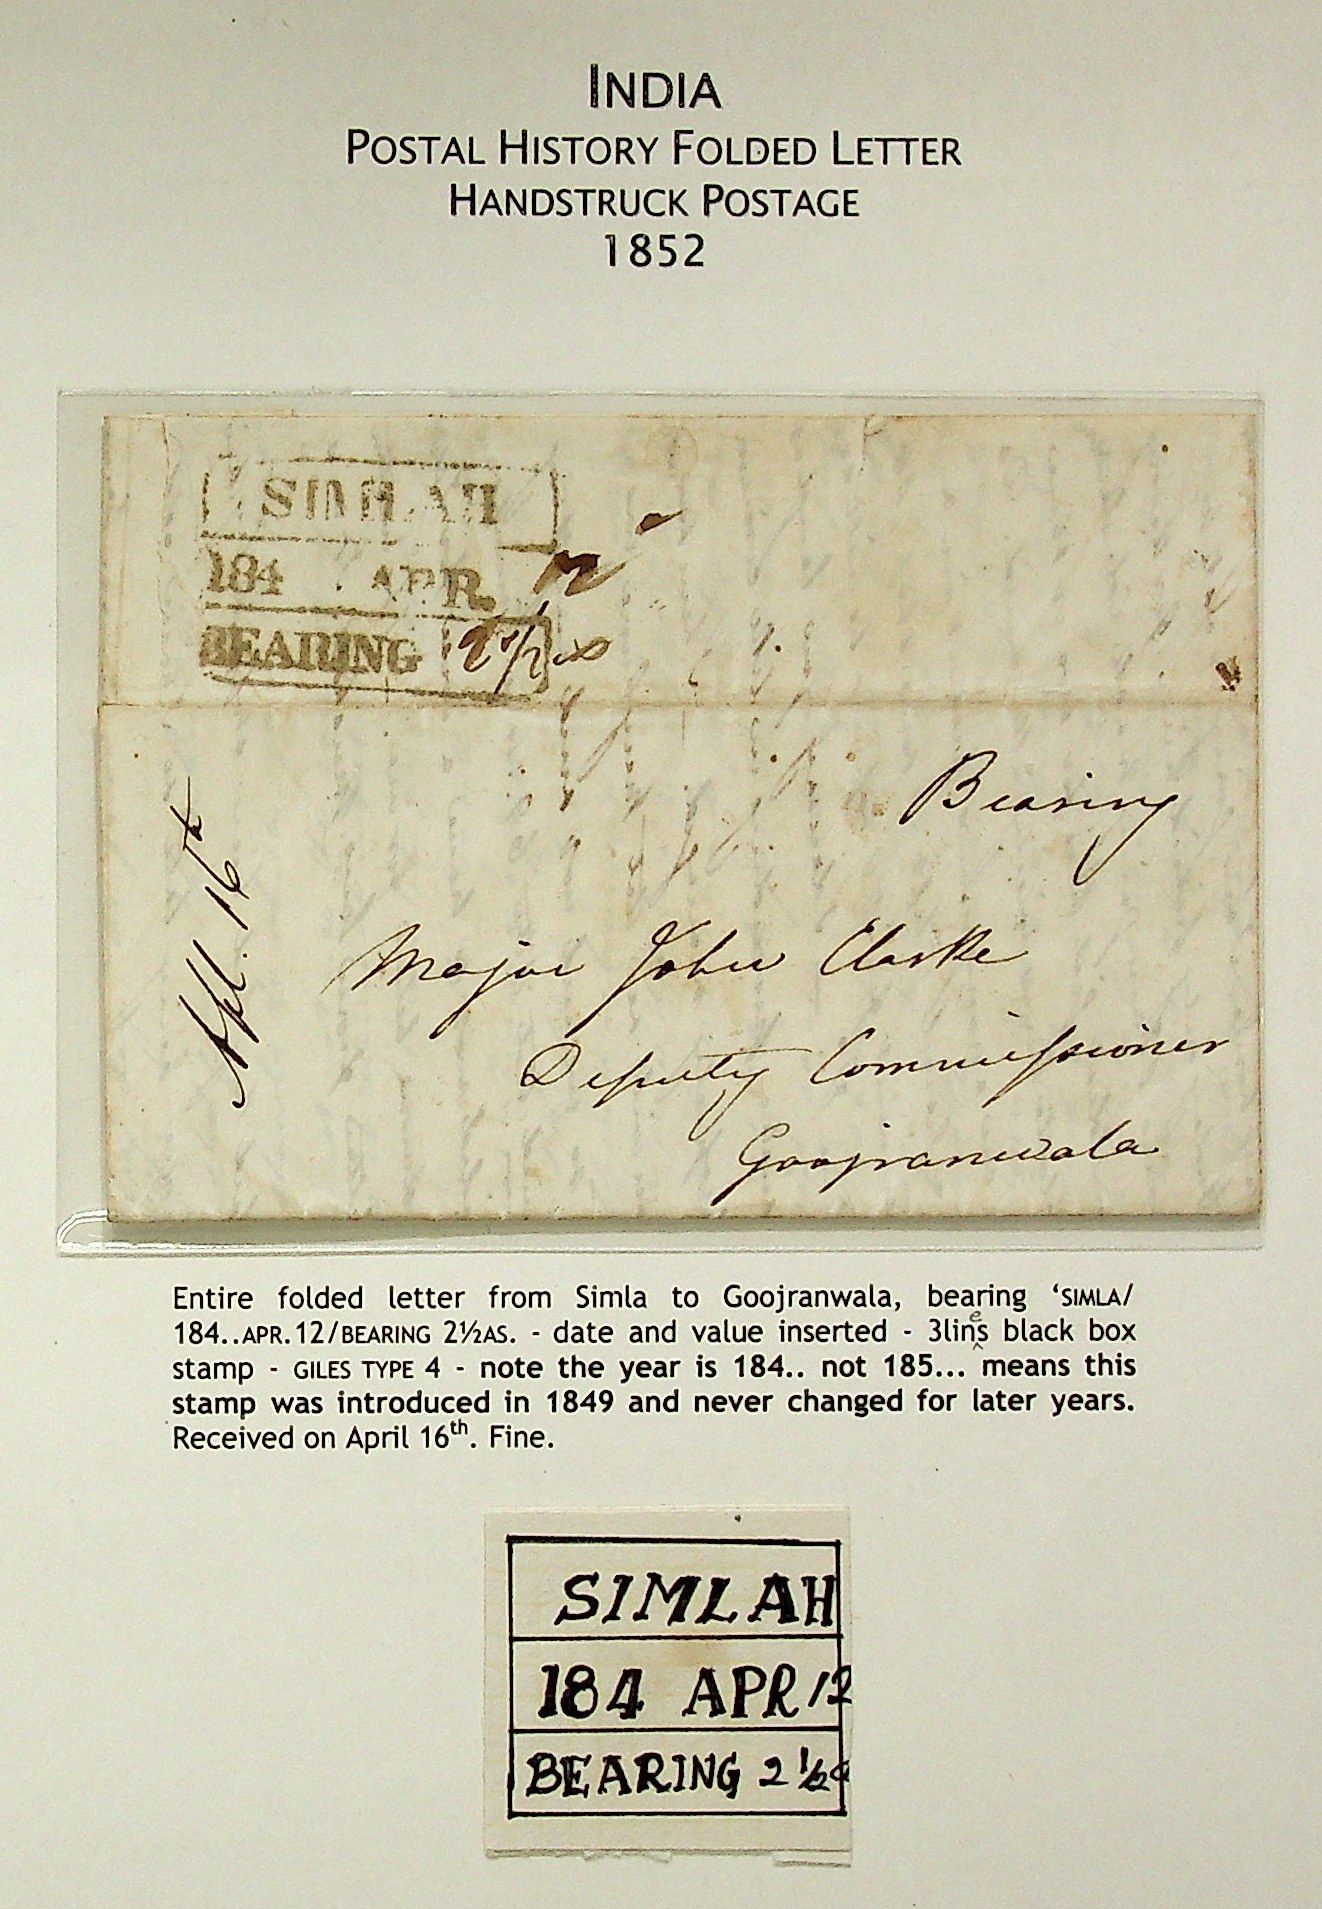 INDIA
POSTAL HISTORY FOLDED LETTER
HANDSTRUCK POSTAGE
1852
SIMLAH
184 APR. 12
BEARING 2 1/2 as
Bearing
Apl. 16th
Major John Clarke
Deputy Commissioner
Goojranwala
Entire folded letter from Simla to Goojranwala, bearing ‘SIMLA/
184..APR.12/BEARING 2½AS. - date and value inserted - 3lines black box
stamp - GILES TYPE 4 - note the year is 184.. not 185... means this
stamp was introduced in 1849 and never changed for later years.
Received on April 16th. Fine.
SIMLAH
184 APR 12
BEARING 2 ½a